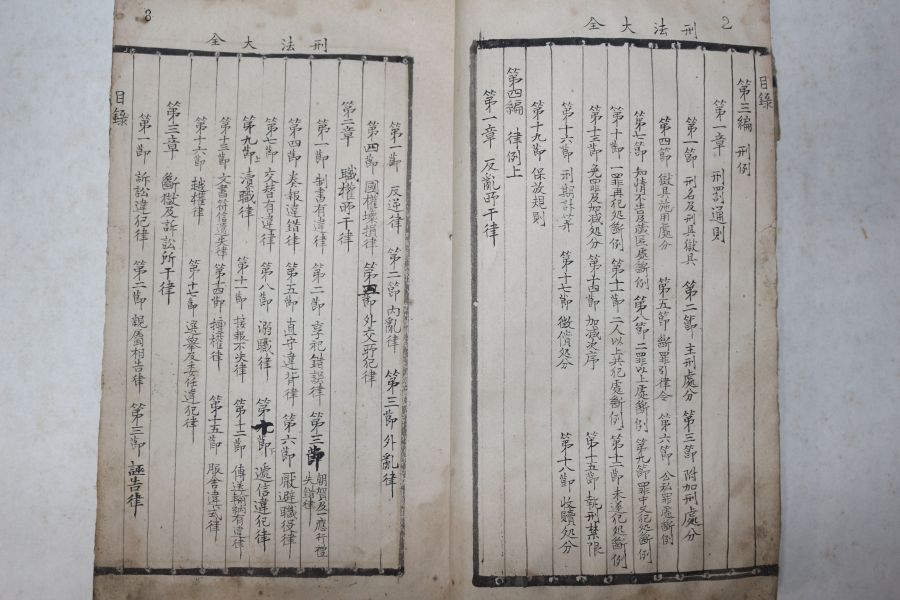 2
刑法大全
目錄
第三編 刑例
第一章 刑罰通則
第一節 刑名及刑具獄具 第二節 主刑處分 第三節 附加刑處分
第四節 獄具施用處分 第五節 斷罪引律令 第六節 公私罪處斷例
第七節 知情不告及藏匿處斷例 第八節 二罪以上處斷例 第九節 罪中又犯処斷例
第十節 一罪再犯処斷例 第十一節 二人以上共犯處斷例 第十二節 未遂犯処斷例
第十三節 免罪及加減処分 第十四節 加減次序 第十五節 執刑禁限
第十六節 刑期計算 第十七節 徵償処分 第十八節 收贖処分
第十九節 保放規則
第四編 律例上
第一章 反亂所干律
3
刑法大全
目錄
第一節 反逆律 第二節 內亂律 第三節 外亂律
第四節 國權壞損律 第五節 外交所犯律
第二章 職權所干律
第一節 制書有違律 第二節 享祀錯誤律 第三節 朝賀及一應行禮失錯律
第四節 奏報違錯律 第五節 直守違背律 第六節 厭避職役律
第七節 交替有違律 第八節 溺職律 第十節 遞信違犯律
第九節 瀆職律 第十一節 接報不決律 第十二節 傳送輸納有違律
第十三節 文書符信遺失律 第十四節 擅權律 第十五節 服舍違式律
第十六節 越權律 第十七節 選擧及委任違犯律
第三章 斷獄及訴訟所干律
第一節 訴訟違犯律 第二節 親屬相告律 第三節 誣告律